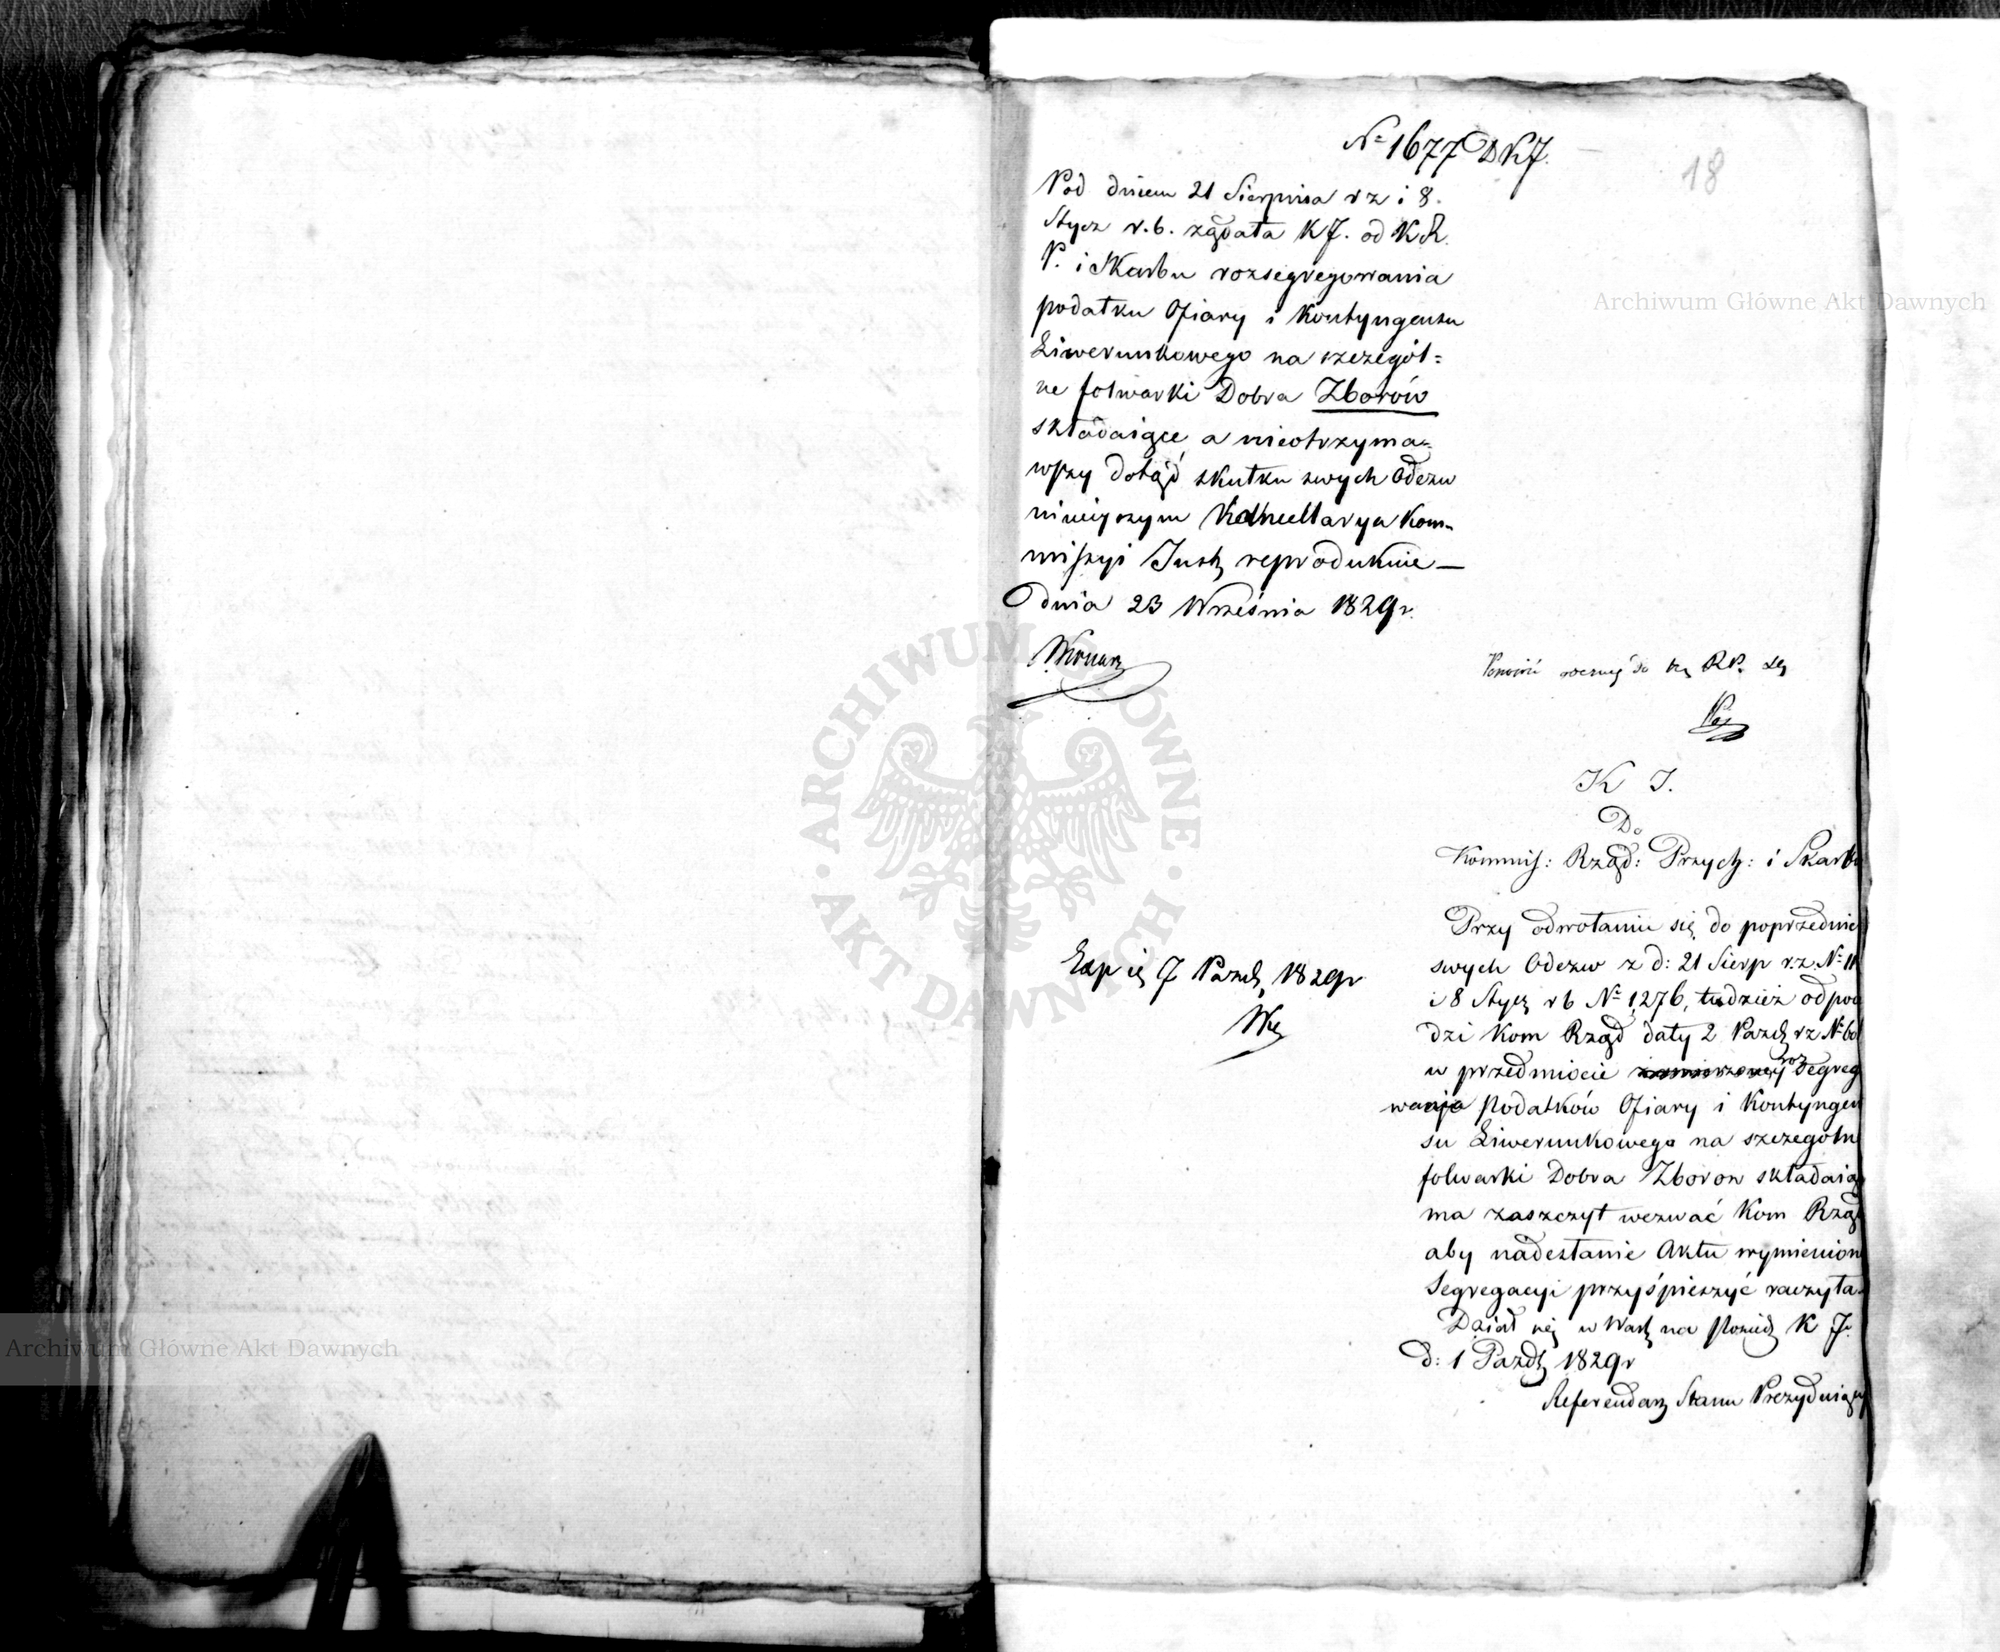 Nº 1677 DKJ.
18
Pod dniem 21 Sierpnia r z i 8.
Stycz r. b. żądała KJ. od K R.
P. i Skarbu rozsegregowania
podatku Ofiary i Kontyngensu
Liwerunkowego na szczegól=
ne folwarki Dobra Zborów
składaiące, a nieotrzyma=
wszy dotąd skutku swych Odezw
ninieyszym Kancellarya Kom=
missyi Just reprodukuie —
Dnia 23 Września 1829 r.
Ponowić do RP.
K J.
Do
Kommis: Rząd: Przych: i Skarbu
Przy odwołaniu się do poprzednic
swych Odezw z d: 21 Sierp r.z. Nº 11
i 8 Stycz r b Nº 1276, tudzież odpow
dzi Kom Rząd daty 2 Pazdz rz Nº 60
w przedmiocie rozsegreg
wania Podatków Ofiary i Kontyngen
su Liwerunkowego na szczególn
folwarki Dobra Zborow składaią
ma zaszczyt wezwać Kom Rząd
aby nadesłanie Aktu wymienion
Segregacyi przyśpieszyć raczyła.
Działo się w Warsz na Posiedz K J.
d: 1 Pazdz 1829 r
Referendarz Stanu Prezyduiący
Exp 7 Pazdz 1829 r
Archiwum Główne Akt Dawnych
ARCHIWUM GŁÓWNE
AKT DAWNYCH
Archiwum Główne Akt Dawnych